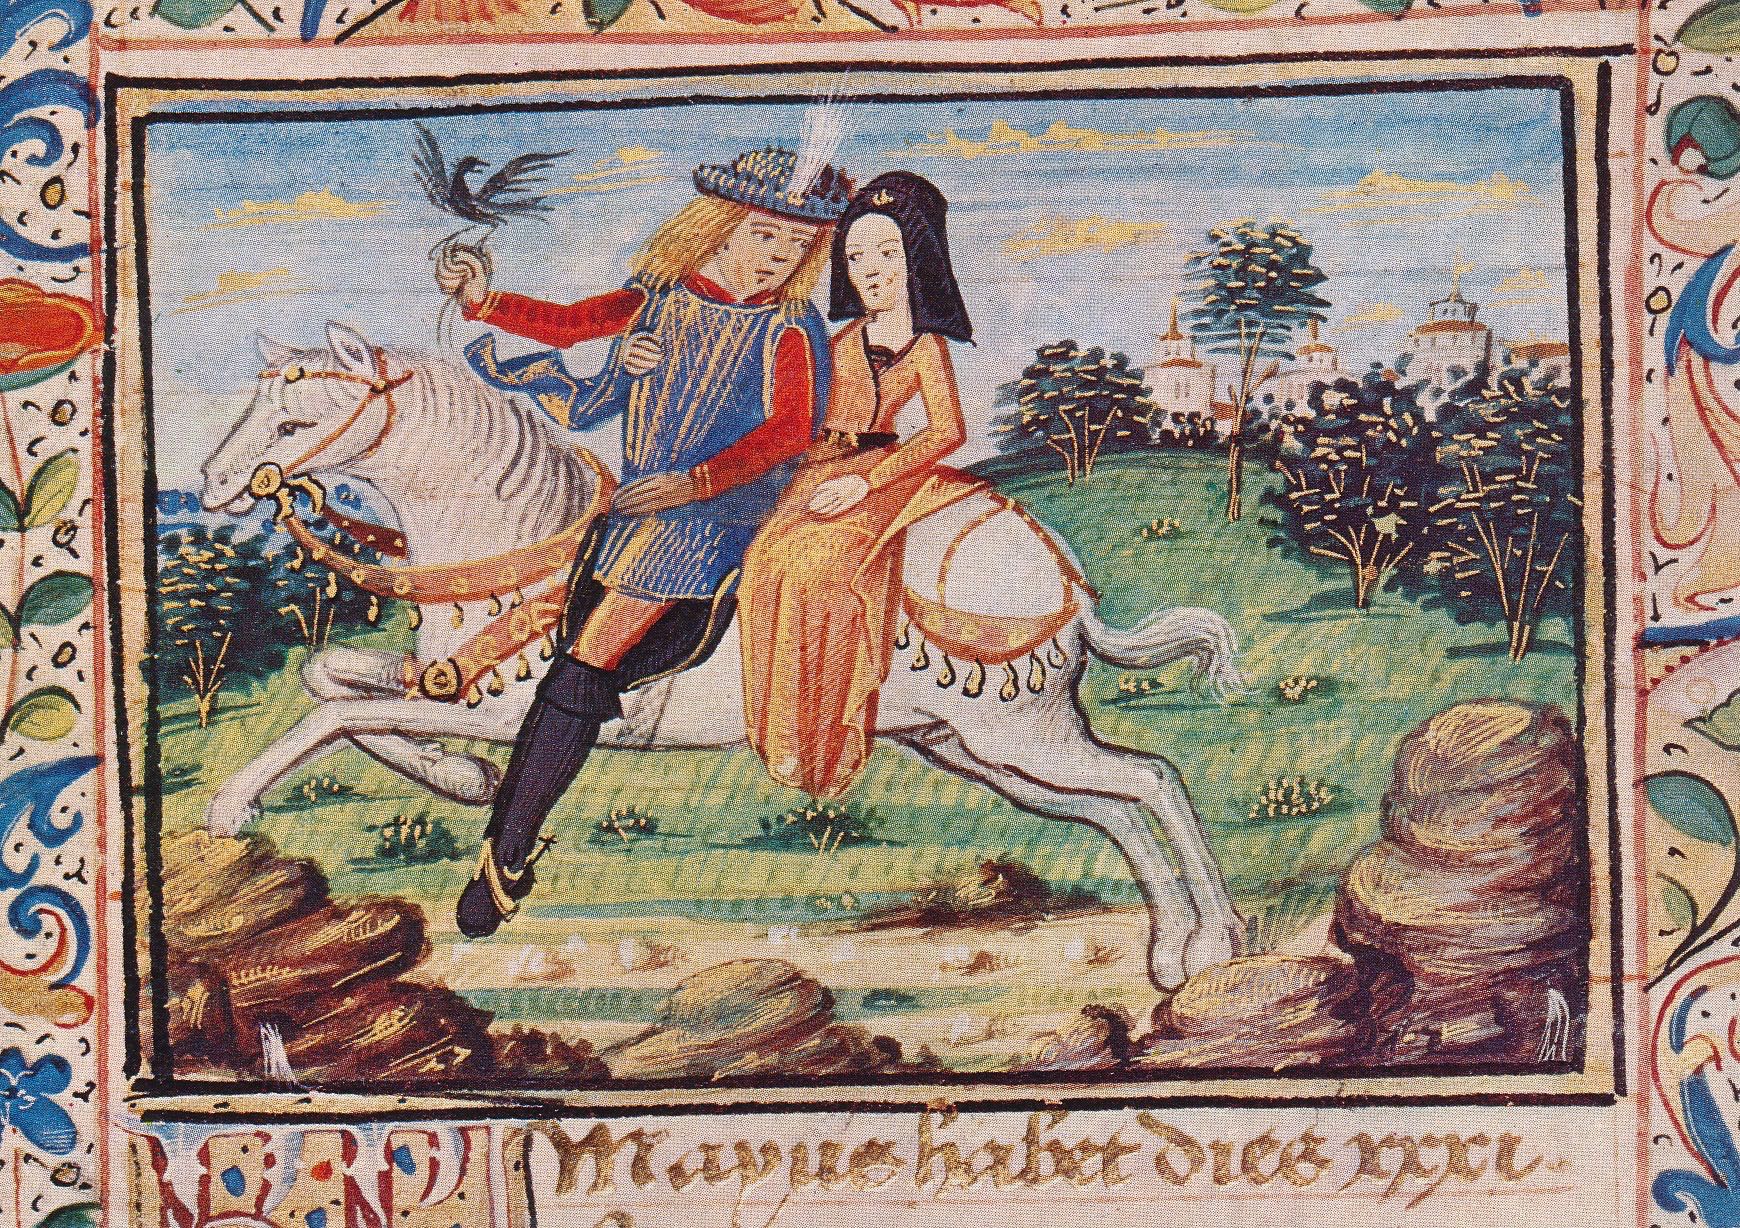 Mayus habet dies xxxi.